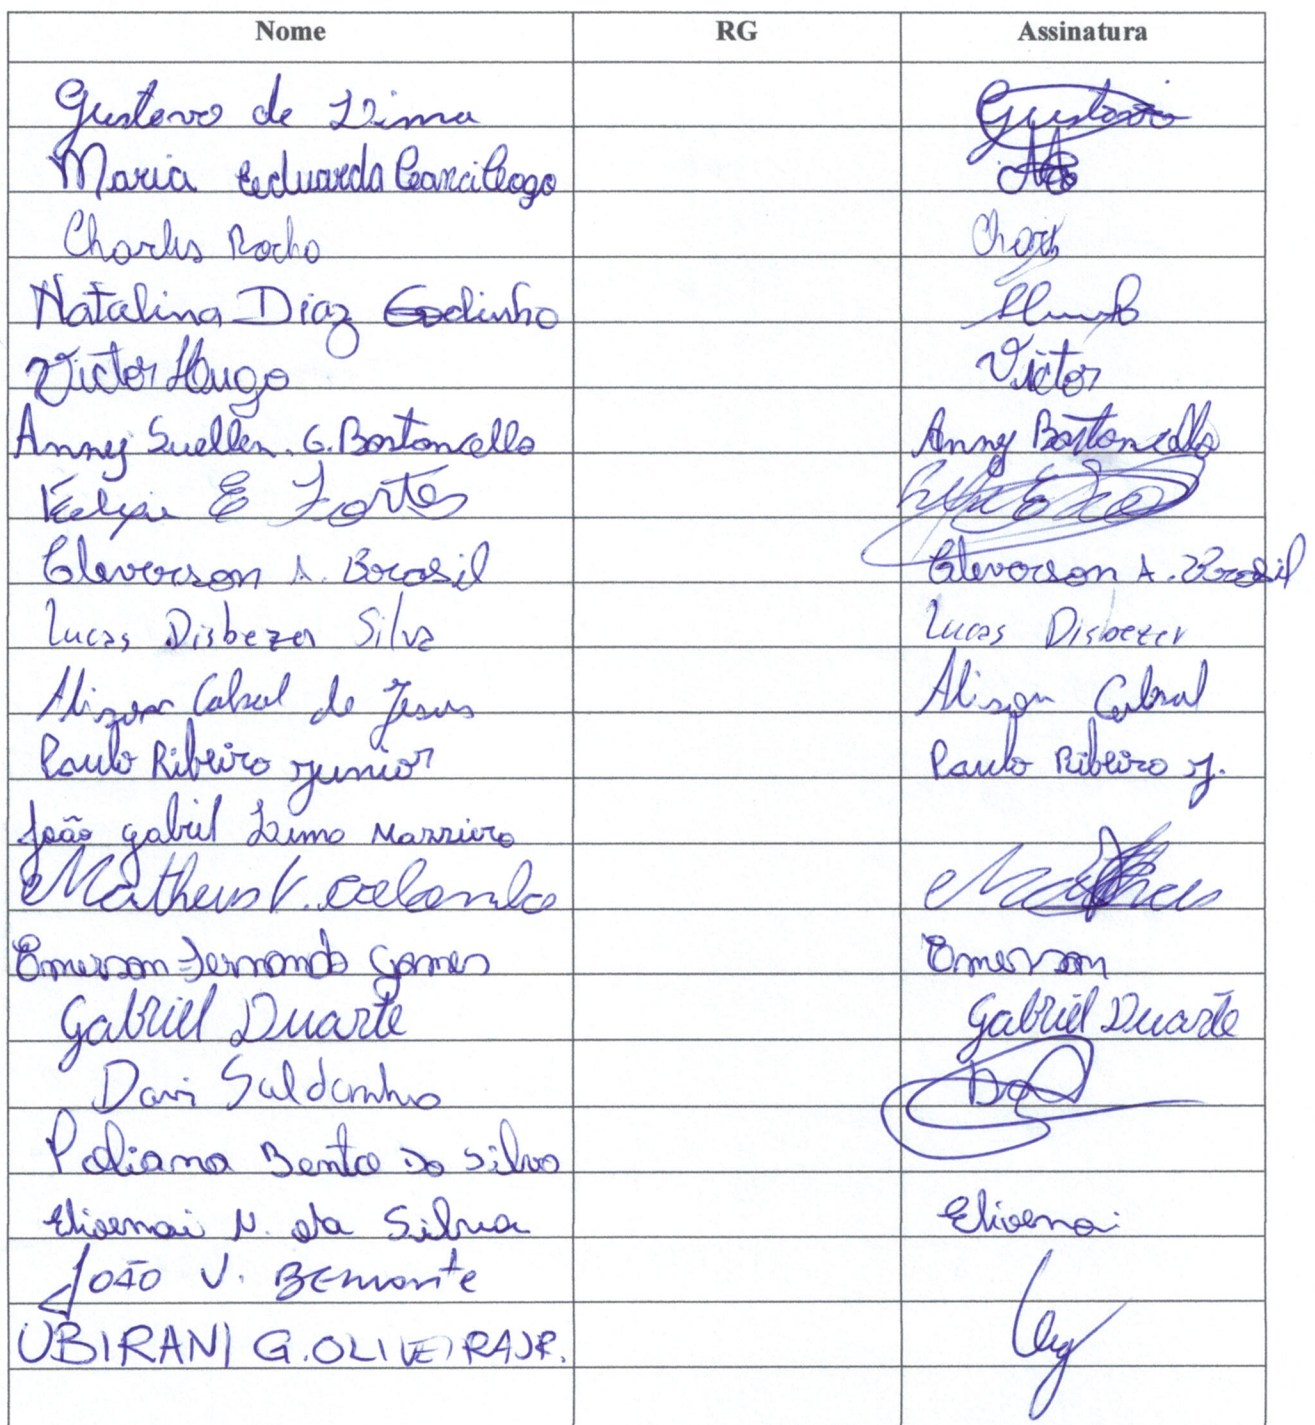 Nome RG Assinatura
Gustavo de Lima Gustavo
Maria Eduarda
Charles Rocha Charles
Natalina Diaz Godinho
Victor Hugo Victor
Anny Suellen. G. Bortoncello Anny Bortoncello
Felipe E Fortes
Cleverson A. Brasil Cleverson A. Brasil
Lucas Disbezer Silva Lucas Disbezer
Alison Cabral de Jesus Alison Cabral
Paulo Ribeiro Junior Paulo Ribeiro J.
João Gabriel Lima
Matheus V. Colombo Matheus
Emerson Fernando Gomes Emerson
Gabriel Duarte Gabriel Duarte
Davi Saldanha
Poliana Bento da Silva
Elioenai N. da Silva Elioenai
João V. Bemonte
UBIRANI G. OLIVEIRA JR.